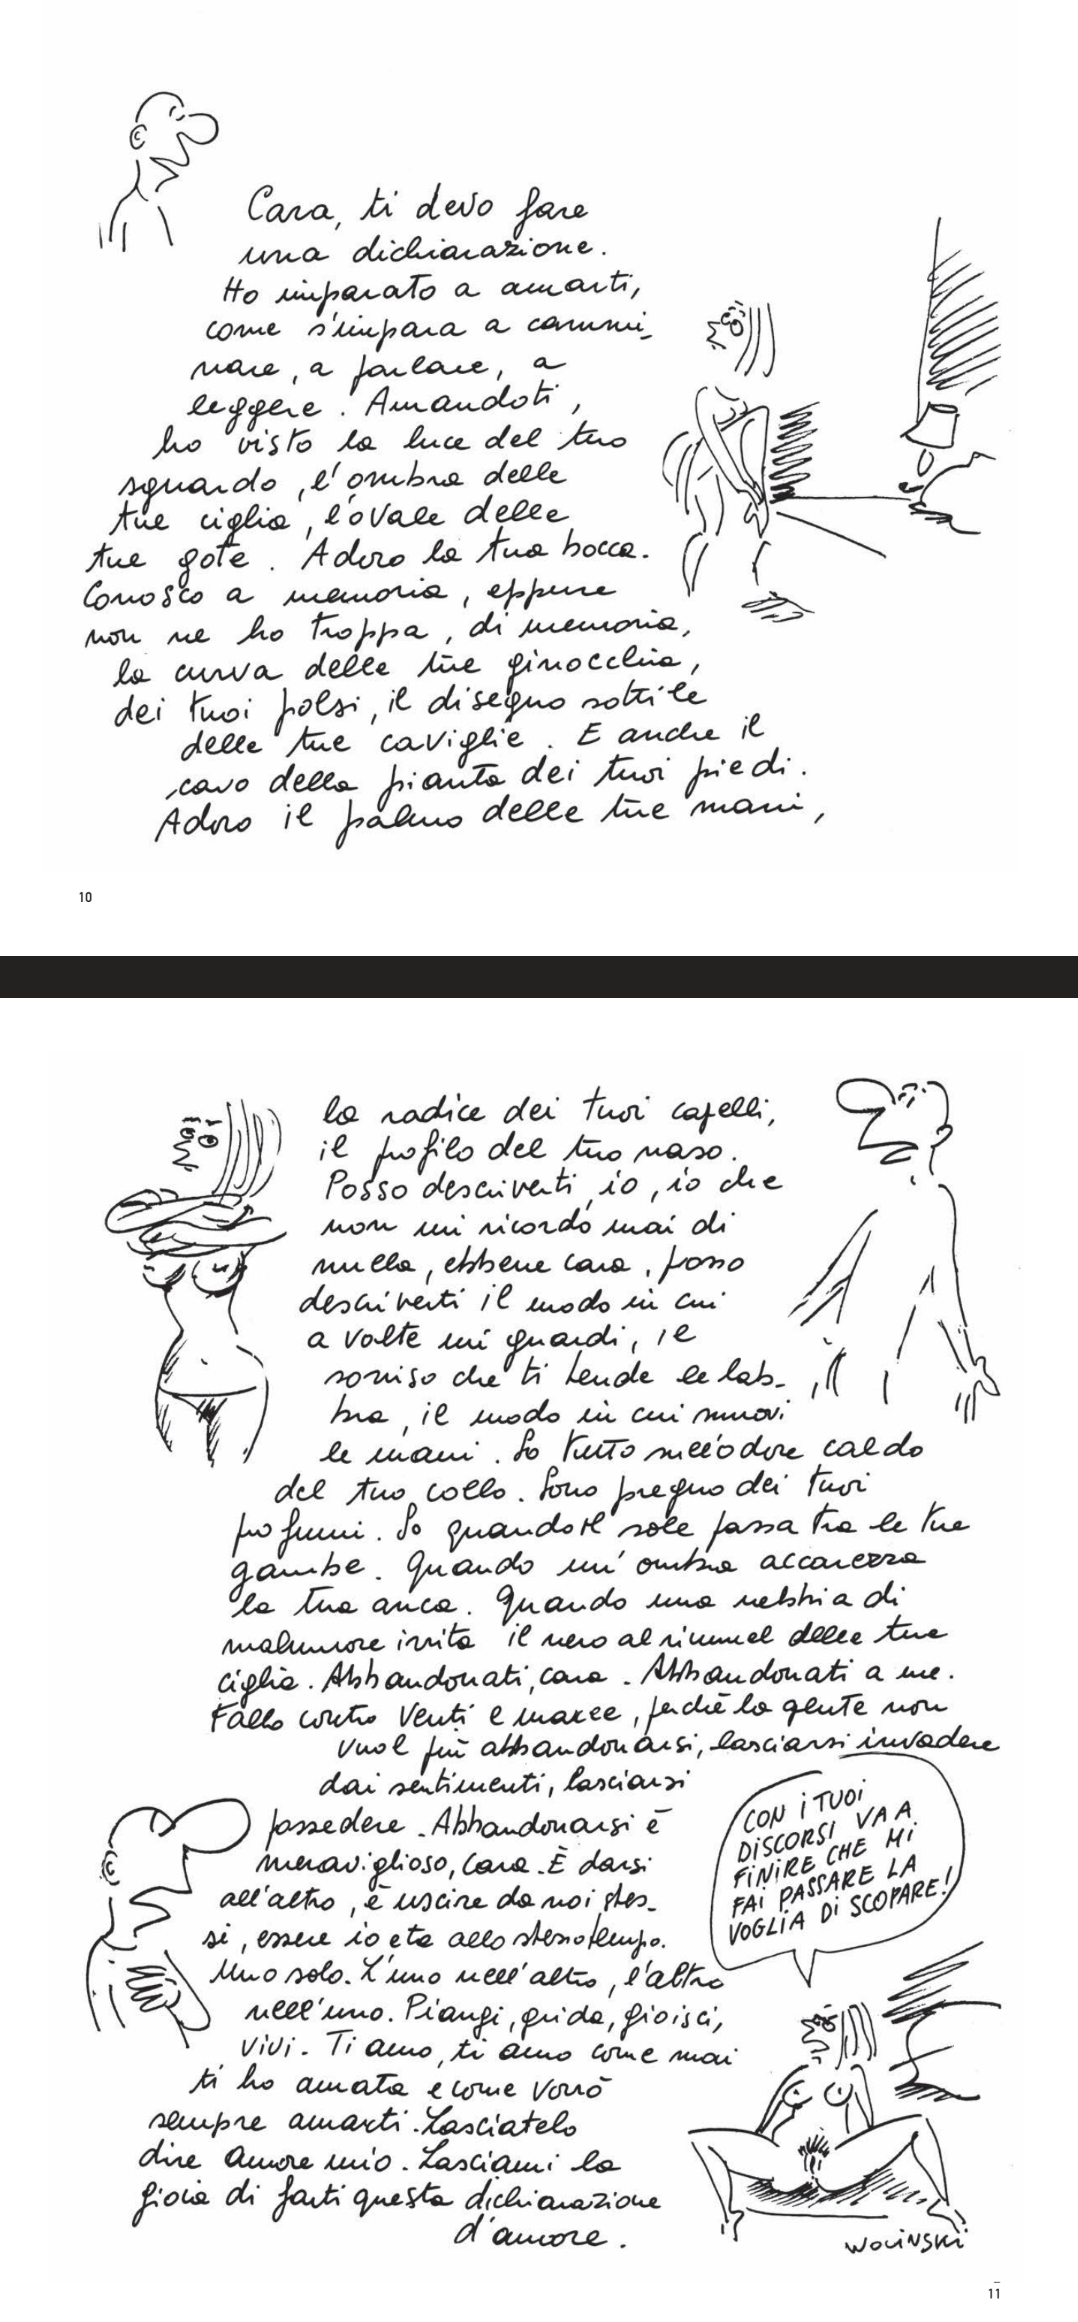 Cara, ti devo fare
una dichiarazione.
Ho imparato a amarti,
come s'impara a cammi-
nare, a parlare, a
leggere. Amandoti,
ho visto la luce del tuo
sguardo, l'ombra delle
tue ciglia, l'ovale delle
tue gote. Adoro la tua bocca.
Conosco a memoria, eppure
non ne ho troppa, di memoria,
la curva delle tue ginocchia,
dei tuoi polsi, il disegno sottile
delle tue caviglie. E anche il
cavo della pianta dei tuoi piedi.
Adoro il palmo delle tue mani,
10
la radice dei tuoi capelli,
il profilo del tuo naso.
Posso descriverti, io, io che
non mi ricordo mai di
nulla, ebbene cara, posso
descriverti il modo in cui
a volte mi guardi, il
sorriso che ti tende le lab-
bra, il modo in cui muovi
le mani. So tutto sull'odore caldo
del tuo collo. Sono pregno dei tuoi
profumi. So quando il sole passa tra le tue
gambe. Quando un'ombra accarezza
la tua anca. Quando una nebbia di
malumore irrita il nero al rimmel delle tue
ciglia. Abbandonati, cara. Abbandonati a me.
Fallo contro venti e maree, perché la gente non
vuole più abbandonarsi, lasciarsi invadere
dai sentimenti, lasciarsi
possedere. Abbandonarsi è
meraviglioso, cara. È darsi
all'altro, è uscire da noi stes-
si, essere io e te allo stesso tempo.
Uno solo. L'uno nell'altro, l'altro
nell'uno. Piangi, grida, gioisci,
vivi. Ti amo, ti amo come mai
ti ho amata e come vorrò
sempre amarti. Lasciatelo
dire amore mio. Lasciami la
gioia di farti questa dichiarazione
d'amore.
CON I TUOI
DISCORSI VA A
FINIRE CHE MI
FAI PASSARE LA
VOGLIA DI SCOPARE!
WOLINSKI
11